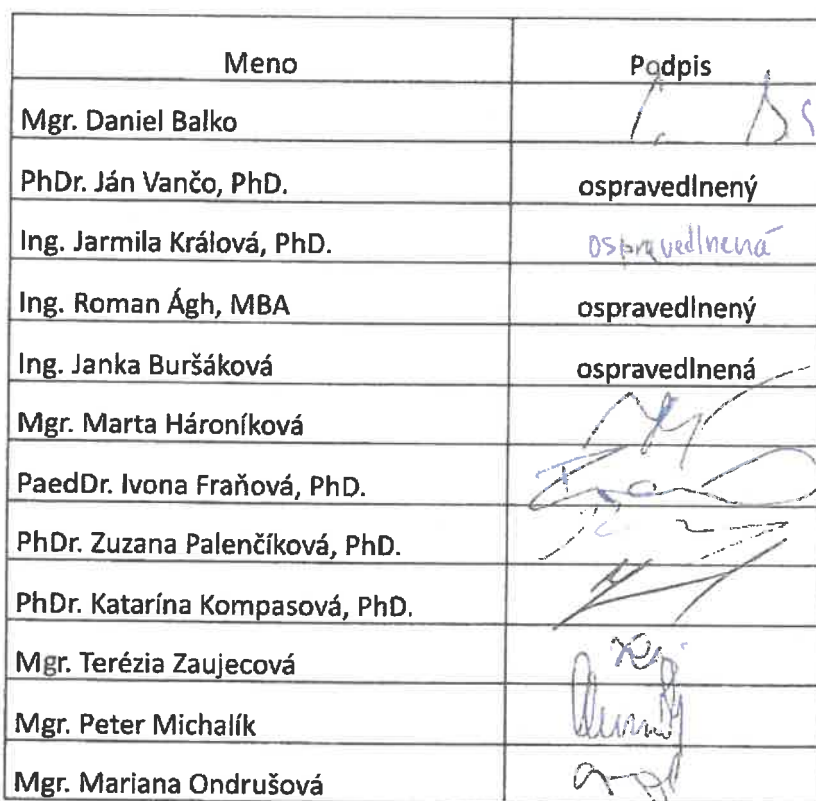 Meno Podpis
Mgr. Daniel Balko
PhDr. Ján Vančo, PhD. ospravedlnený
Ing. Jarmila Králová, PhD. ospravedlnená
Ing. Roman Ágh, MBA ospravedlnený
Ing. Janka Buršáková ospravedlnená
Mgr. Marta Hároníková
PaedDr. Ivona Fraňová, PhD.
PhDr. Zuzana Palenčíková, PhD.
PhDr. Katarína Kompasová, PhD.
Mgr. Terézia Zaujecová
Mgr. Peter Michalík
Mgr. Mariana Ondrušová